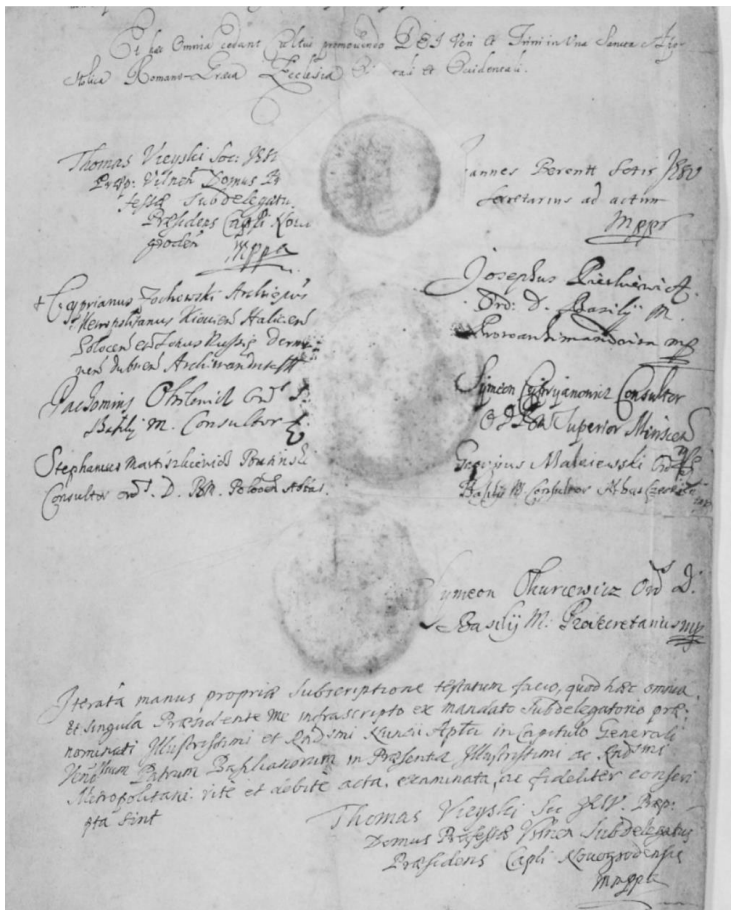 Et haec Omnia cedant Cultui promovendo DEI Veri et Trini in Una Sancta Apo-
stolica Romano-Graeca Ecclesia Ori tali et Occidentali.
Thomas Uieyski Soc: JESU
Praep: Vilnen Domus Pro
fessae Subdelegatu
Praesidens Capli Novo
groden mppa
Joannes Berentt Sotis JESU
Secretarius ad actum
Mppr
+ Cyprianus Zochowski Archieppus
Metropolitanus Kiovien Halicien
Polocen et Totius Russiae Derma
nen Dubnen Archimandrita
Pachomius Ohilewicz Ord. S.
Basilij M. Consultor
Stephanus Martiszkiewicz Businski
Consultor Ord. D. B.M.
Josephus Pietkiewicz
Ord: D. Basilij M.
Protoarchimandrita mp
Symeon Cyprijanowicz Consultor
O D B M Superior Minscen
Georgius Malejewski Ord
Basilij M. Consultor Abbas
Symeon Ohurcewicz Ord D.
Basilij M: Prosecretarius mp
Iterata manus propriae Subscriptione testatum facio, quod haec omnia
et singula Praesidente me infrascripto ex mandato Subdelegatorio prae-
nominati Illustrissimi et Rndsmi Nuncii Aplci in Capitulo Generali
Vendorum Patrum Basilianorum in Praesentia Illustrissimi ac Rndsmi
Metropolitani rite et debite acta, examinata, ac fideliter conscri
pta sint
Thomas Uieyski Soc JESU. Praep:
Domus Professae Vilnen Subdelegatus
Praesidens Capli Novogrodensis
mppa